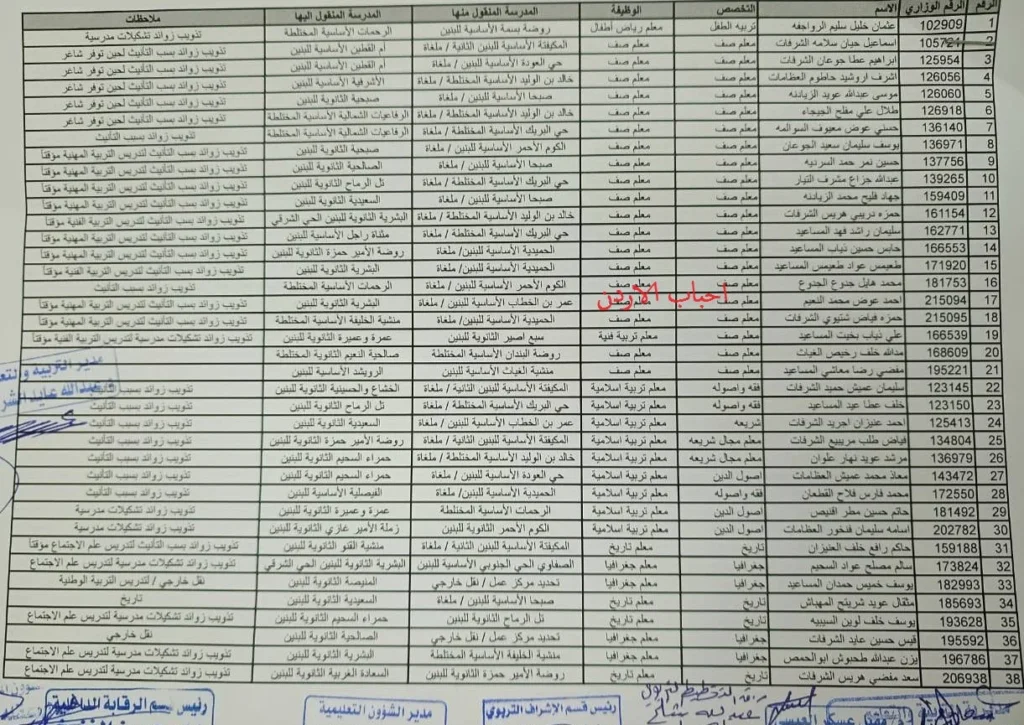 الرقم الرقم الوزاري الاسم التخصص الوظيفة المدرسة المنقول منها المدرسة المنقول اليها ملاحظات
1 102909 عثمان خليل سليم الرواجفه تربيه الطفل معلم رياض أطفال روضة بسمة الأساسية للبنين الرحمات الأساسية المختلطة تذويب زوائد تشكيلات مدرسية
2 105721 اسماعيل حيان سلامه الشرفات معلم صف معلم صف المكيفتة الأساسية للبنين الثانية / ملغاة أم القطين الأساسية للبنين تذويب زوائد بسب التأنيث لحين توفر شاغر
3 125954 ابراهيم عطا جوعان الشرفات معلم صف معلم صف حي العودة الأساسية للبنين / ملغاة أم القطين الأساسية للبنين تذويب زوائد بسب التأنيث لحين توفر شاغر
4 126056 اشرف اروشيد حاطوم العظامات معلم صف معلم صف خالد بن الوليد الأساسية المختلطة / ملغاة الأشرفية الأساسية للبنين تذويب زوائد بسب التأنيث لحين توفر شاغر
5 126060 موسى عبدالله عويد الزيادنه معلم صف معلم صف صبحا الأساسية للبنين / ملغاة صبحية الثانوية للبنين تذويب زوائد بسب التأنيث لحين توفر شاغر
6 126918 طلال علي مفلح الجيجاء معلم صف معلم صف خالد بن الوليد الأساسية المختلطة / ملغاة الرفاعيات الشمالية الأساسية المختلطة تذويب زوائد بسب التأنيث لحين توفر شاغر
7 136140 حسني عوض معيوف السوالمه معلم صف معلم صف حي البريك الأساسية المختلطة / ملغاة الرفاعيات الشمالية الأساسية المختلطة تذويب زوائد بسب التأنيث
8 136971 يوسف سليمان سعيد الجوعان معلم صف معلم صف الكوم الأحمر الأساسية للبنين / ملغاة صبحية الثانوية للبنين تذويب زوائد بسب التأنيث لتدريس التربية المهنية مؤقتاً
9 137756 حسين نمر حمد السرديه معلم صف معلم صف صبحا الأساسية للبنين / ملغاة الصالحية الثانوية للبنين تذويب زوائد بسب التأنيث لتدريس التربية المهنية مؤقتاً
10 139265 عبدالله جزاع مشرف التيار معلم صف معلم صف حي البريك الأساسية المختلطة / ملغاة تل الرماح الثانوية للبنين تذويب زوائد بسب التأنيث لتدريس التربية المهنية مؤقتاً
11 159409 جهاد فليح محمد الزيادنه معلم صف معلم صف صبحا الأساسية للبنين / ملغاة السعيدية الثانوية للبنين تذويب زوائد بسب التأنيث لتدريس التربية المهنية مؤقتاً
12 161154 حمزه دريبي هريس الشرفات معلم صف معلم صف خالد بن الوليد الأساسية المختلطة / ملغاة البشرية الثانوية للبنين الحي الشرقي تذويب زوائد بسب التأنيث لتدريس التربية الفنية مؤقتاً
13 162771 سليمان راشد فهد المساعيد معلم صف معلم صف حي البريك الأساسية المختلطة / ملغاة مثناة راجل الأساسية للبنين تذويب زوائد بسب التأنيث لتدريس التربية المهنية مؤقتاً
14 166553 حابس حسين ذياب المساعيد معلم صف معلم صف الحميدية الأساسية للبنين/ ملغاة روضة الأمير حمزة الثانوية للبنين تذويب زوائد بسب التأنيث لتدريس التربية المهنية مؤقتاً
15 171920 طعيمس عواد طعيمس المساعيد معلم صف معلم صف الحميدية الأساسية للبنين/ ملغاة البشرية الثانوية للبنين تذويب زوائد بسب التأنيث لتدريس التربية الفنية مؤقتاً
16 181753 محمد هايل جدوع الجدوع معلم صف معلم صف الكوم الأحمر الأساسية للبنين / ملغاة الرحمات الأساسية المختلطة تذويب زوائد بسب التأنيث
احباب الأردن
17 215094 احمد عوض محمد النعيم معلم صف معلم صف عمر بن الخطاب الأساسية للبنين / ملغاة البشرية الثانوية للبنين تذويب زوائد بسب التأنيث لتدريس التربية المهنية مؤقتاً
18 215095 حمزه فياض شتيوي الشرفات معلم صف معلم صف الحميدية الأساسية للبنين/ ملغاة منشية الخليفة الأساسية المختلطة تذويب زوائد بسب التأنيث لتدريس التربية المهنية مؤقتاً
19 166539 علي ذياب بخيت المساعيد معلم صف معلم تربية فنية سبع اصير الثانوية للبنين عمرة وعميرة الثانوية للبنين تذويب زوائد تشكيلات مدرسية لتدريس التربية الفنية مؤقتاً
20 168609 مدالله خلف رخيص الغياث معلم صف معلم صف روضة البندان الأساسية المختلطة صالحية النعيم الثانوية المختلطة
21 195221 مفضي رضا معاشي المساعيد معلم صف معلم صف منشية الغياث الأساسية للبنين الرويشد الأساسية للبنين
22 123145 سليمان عميش حميد الشرفات فقه واصوله معلم تربية اسلامية المكيفتة الأساسية للبنين الثانية / ملغاة الخشاع والحسينية الثانوية للبنين تذويب زوائد بسبب
23 123150 خلف عطا عيد المساعيد فقه واصوله معلم تربية اسلامية حي البريك الأساسية المختلطة / ملغاة تل الرماح الثانوية للبنين تذويب زوائد بسبب التأنيث
24 125413 احمد عنيزان اجريد الشرفات شريعه معلم تربية اسلامية عمر بن الخطاب الأساسية للبنين / ملغاة السعيدية الثانوية للبنين تذويب زوائد بسبب التأنيث
25 134804 فياض طلب مريبيع الشرفات معلم مجال شريعه معلم تربية اسلامية المكيفتة الأساسية للبنين الثانية / ملغاة روضة الأمير حمزة الثانوية للبنين تذويب زوائد بسبب التأنيث
26 136979 مرشد عويد نهار علوان معلم مجال شريعه معلم تربية اسلامية خالد بن الوليد الأساسية المختلطة / ملغاة حمراء السحيم الثانوية للبنين تذويب زوائد بسبب التأنيث
27 143472 معاذ محمد عميش العظامات اصول الدين معلم تربية اسلامية حي العودة الأساسية للبنين / ملغاة حمراء السحيم الثانوية للبنين تذويب زوائد بسبب التأنيث
28 172550 محمد فارس فلاح القطعان فقه واصوله معلم تربية اسلامية الحميدية الأساسية للبنين/ ملغاة الفيصلية الأساسية للبنين تذويب زوائد بسبب التأنيث
29 181492 حاتم حسين مطر اقنيص اصول الدين معلم تربية اسلامية الرحمات الأساسية المختلطة عمرة وعميرة الثانوية للبنين تذويب زوائد تشكيلات مدرسية
30 202782 اسامه سليمان فنخور العظامات اصول الدين معلم تربية اسلامية الكوم الأحمر الثانوية للبنين زملة الأمير غازي الثانوية للبنين تذويب زوائد تشكيلات مدرسية
31 159188 حاكم رافع خلف العنيزان تاريخ معلم تاريخ المكيفتة الأساسية للبنين الثانية / ملغاة منشية القنو الثانوية للبنين تذويب زوائد بسب التأنيث لتدريس علم الاجتماع مؤقتاً
32 173824 سالم مصلح عواد السحيم جغرافيا معلم جغرافيا الصفاوي الحي الجنوبي الأساسية للبنين البشرية الثانوية للبنين الحي الشرقي تذويب زوائد تشكيلات مدرسية لتدريس علم الاجتماع
33 182993 يوسف خميس حمدان المساعيد جغرافيا معلم جغرافيا تحديد مركز عمل / نقل خارجي المنيصة الثانوية للبنين نقل خارجي / لتدريس التربية الوطنية
34 185693 مثقال عويد شريتح المهباش تاريخ معلم تاريخ صبحا الأساسية للبنين / ملغاة السعيدية الثانوية للبنين تاريخ
35 193628 يوسف خلف لوين السبيبه تاريخ معلم تاريخ تل الرماح الثانوية للبنين حمراء السحيم الثانوية للبنين تذويب زوائد تشكيلات مدرسية لتدريس علم الاجتماع
36 195592 قيس حسين عايد الشرفات جغرافيا معلم جغرافيا تحديد مركز عمل / نقل خارجي الصالحية الثانوية للبنين نقل خارجي
37 196786 يزن عبدالله طحبوش ابوالحمص جغرافيا معلم جغرافيا منشية الخليفة الأساسية المختلطة البشرية الثانوية للبنين تذويب زوائد تشكيلات مدرسية لتدريس علم الاجتماع
38 206938 سعد مفضي هريس الشرفات تاريخ معلم تاريخ روضة الأمير حمزة الثانوية للبنين السعادة الغربية الثانوية للبنين تذويب زوائد تشكيلات مدرسية لتدريس علم الاجتماع
مدير التربية والتعا
عبدالله عايد الشر
رئيس قسم الإشراف التربوي
مدير الشؤون التعليمية
رئيس قسم الرقابة الداخلية